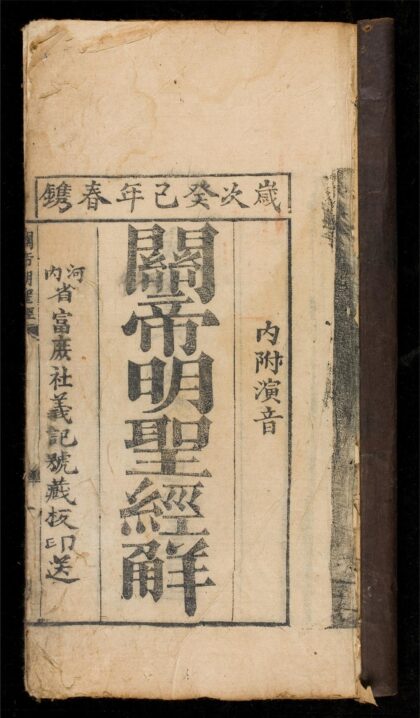 歲次癸巳年春鐫
內附演音
關帝明聖經解
河內省富慶社義記號藏板印送
關帝明聖經